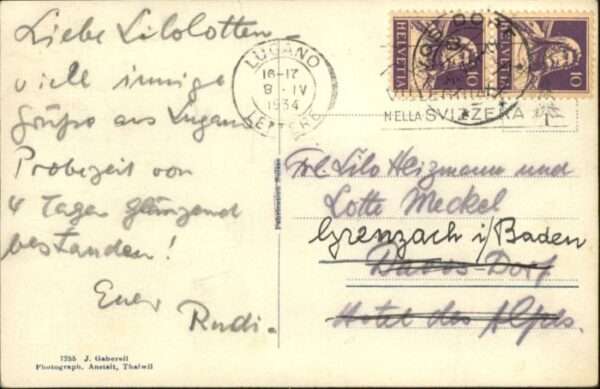 Liebe Lilolotten –
viele innige
Grüße aus Lugano
Probezeit von
4 Tagen glänzend
bestanden!
Euer
Rudi.
LUGANO
16-17
9. IV
1934
LETTERE
HELVETIA
10
HELVETIA
10
NELLA SVIZZERA
Frl. Lilo Heizmann und
Lotte Meckel
Grenzach i/Baden
Davos-Dorf
Hotel des Alpes.
7255 J. Gaberell
Photograph. Anstalt, Thalwil